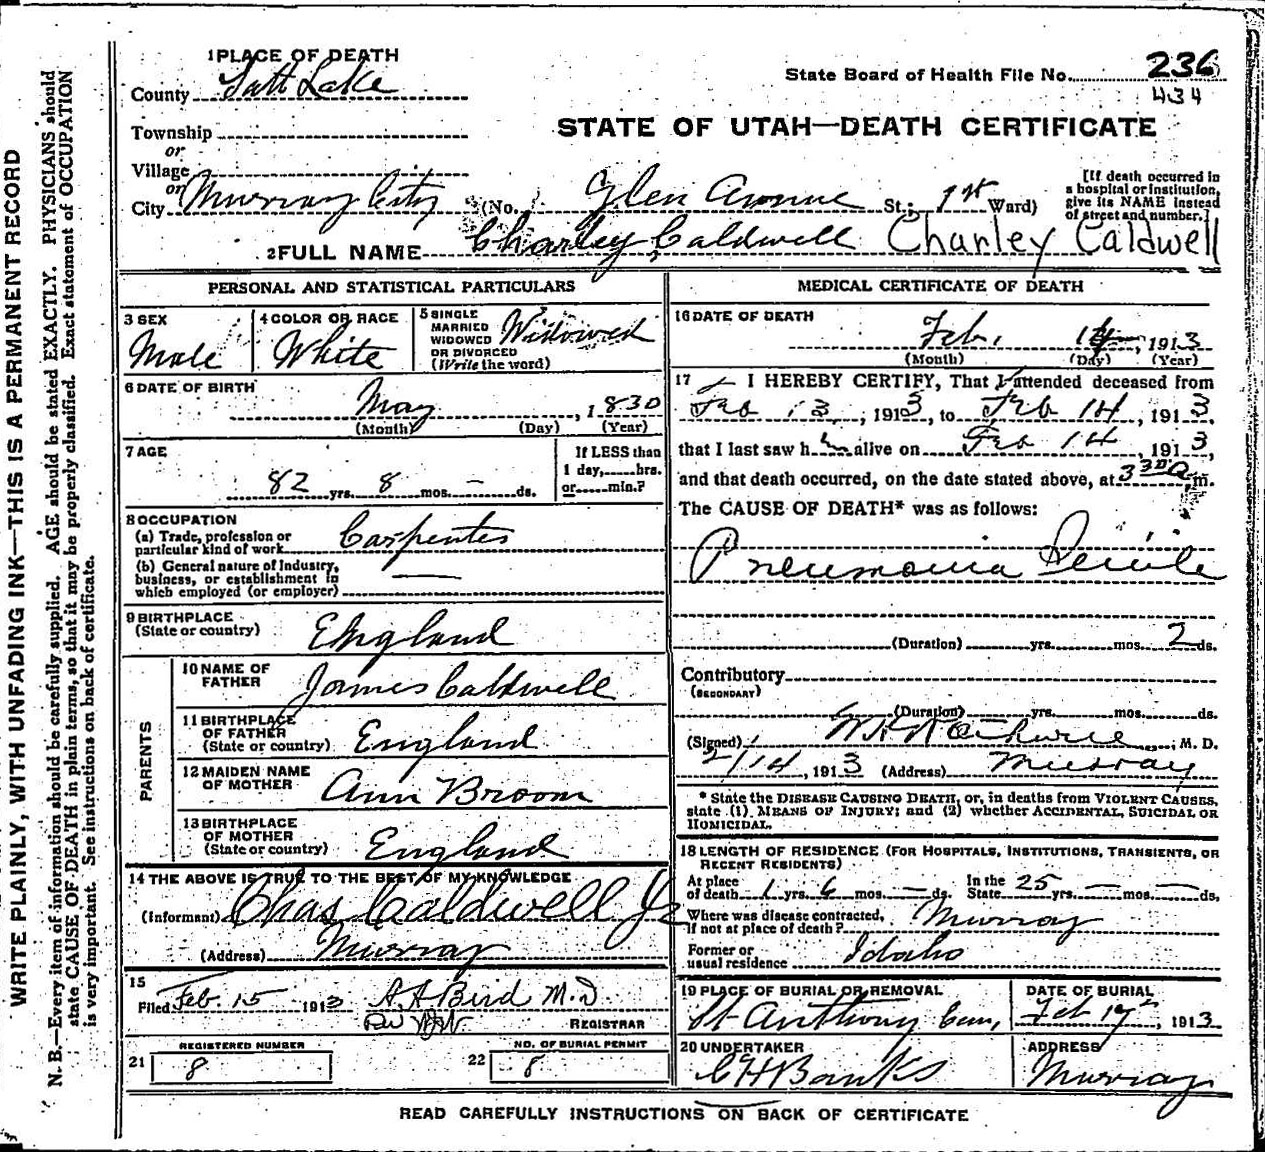 WRITE PLAINLY, WITH UNFADING INK—THIS IS A PERMANENT RECORD
N. B.—Every item of information should be carefully supplied. AGE should be stated EXACTLY. PHYSICIANS should
state CAUSE OF DEATH in plain terms, so that it may be properly classified. Exact statement of OCCUPATION
is very important. See instructions on back of certificate.
1 PLACE OF DEATH
County Salt Lake
Township
or
Village
or
City Murray City (No. Glen Avenue St.; 1st Ward)
State Board of Health File No. 236
434
STATE OF UTAH—DEATH CERTIFICATE
[If death occurred in
a hospital or institution,
give its NAME instead
of street and number.]
2 FULL NAME Charley Caldwell Charley Caldwell
PERSONAL AND STATISTICAL PARTICULARS
3 SEX
Male
4 COLOR OR RACE
White
5 SINGLE
MARRIED
WIDOWED
OR DIVORCED
(Write the word)
Widowed
6 DATE OF BIRTH
May, 1830
(Month) (Day) (Year)
7 AGE
82 yrs. 8 mos. — ds.
If LESS than
1 day, hrs.
or min.?
8 OCCUPATION
(a) Trade, profession or
particular kind of work Carpenter
(b) General nature of Industry,
business, or establishment in
which employed (or employer) —
9 BIRTHPLACE
(State or country) England
PARENTS
10 NAME OF
FATHER James Caldwell
11 BIRTHPLACE
OF FATHER
(State or country) England
12 MAIDEN NAME
OF MOTHER Ann Broom
13 BIRTHPLACE
OF MOTHER
(State or country) England
14 THE ABOVE IS TRUE TO THE BEST OF MY KNOWLEDGE
(Informant) Chas Caldwell Jr
(Address) Murray
15
Filed Feb. 15 1913 A H Bird M. D
REGISTRAR
REGISTERED NUMBER
21 8
NO. OF BURIAL PERMIT
22 8
MEDICAL CERTIFICATE OF DEATH
16 DATE OF DEATH
Feb. 14, 1913
(Month) (Day) (Year)
17 I HEREBY CERTIFY, That I attended deceased from
Feb 13, 1913, to Feb 14, 1913,
that I last saw him alive on Feb 14, 1913,
and that death occurred, on the date stated above, at 3 30 a m.
The CAUSE OF DEATH* was as follows:
Pneumonia Senile
(Duration) yrs. mos. 2 ds.
Contributory
(SECONDARY)
(Duration) yrs. mos. ds.
(Signed) M. D.
2/14, 1913 (Address) Murray
* State the DISEASE CAUSING DEATH, or, in deaths from VIOLENT CAUSES,
state (1) MEANS OF INJURY; and (2) whether ACCIDENTAL, SUICIDAL OR
HOMICIDAL.
18 LENGTH OF RESIDENCE (FOR HOSPITALS, INSTITUTIONS, TRANSIENTS, OR
RECENT RESIDENTS)
At place
of death 1 yrs. 6 mos. — ds. In the
State 25 yrs. — mos. — ds.
Where was disease contracted,
If not at place of death? Murray
Former or
usual residence Idaho
19 PLACE OF BURIAL OR REMOVAL
St Anthony Cem,
DATE OF BURIAL
Feb 17th, 1913
20 UNDERTAKER
C H Banks
ADDRESS
Murray
READ CAREFULLY INSTRUCTIONS ON BACK OF CERTIFICATE